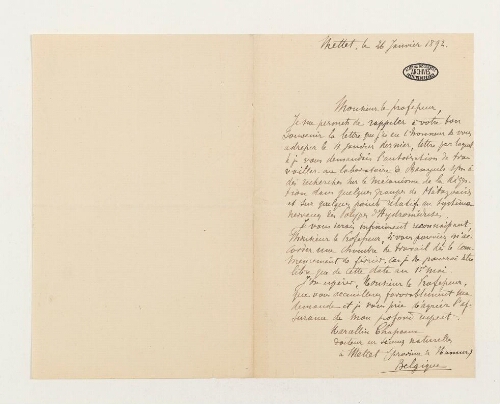 Mettet, le 26 Janvier 1892.
ARCHIVES
Monsieur le professeur,
Je me permets de rappeler à votre bon
souvenir la lettre que j'ai eu l'honneur de vous
adresser le 11 Janvier dernier, lettre par laquel
le je vous demandais l'autorisation de tra
vailler au laboratoire de Banyuls s/m à
des recherches sur le mécanisme de la diges
tion dans quelques groupes de Métazoaires
et sur quelques points relatifs au système
nerveux des Polypes d'Hydroméduses.
Je vous serais infiniment reconnaissant,
Monsieur le Professeur, si vous pouviez m'ac
corder une chambre de travail dès le com
mencement de février, car je ne pourrai être
libre que de cette date au 1er mai.
J'ose espérer, Monsieur le Professeur,
que vous accueillerez favorablement ma
demande et je vous prie d'agréer l'as
surance de mon profond respect.
Marcellin Chapeaux
docteur en sciences naturelles
à Mettet (province de Namur)
Belgique